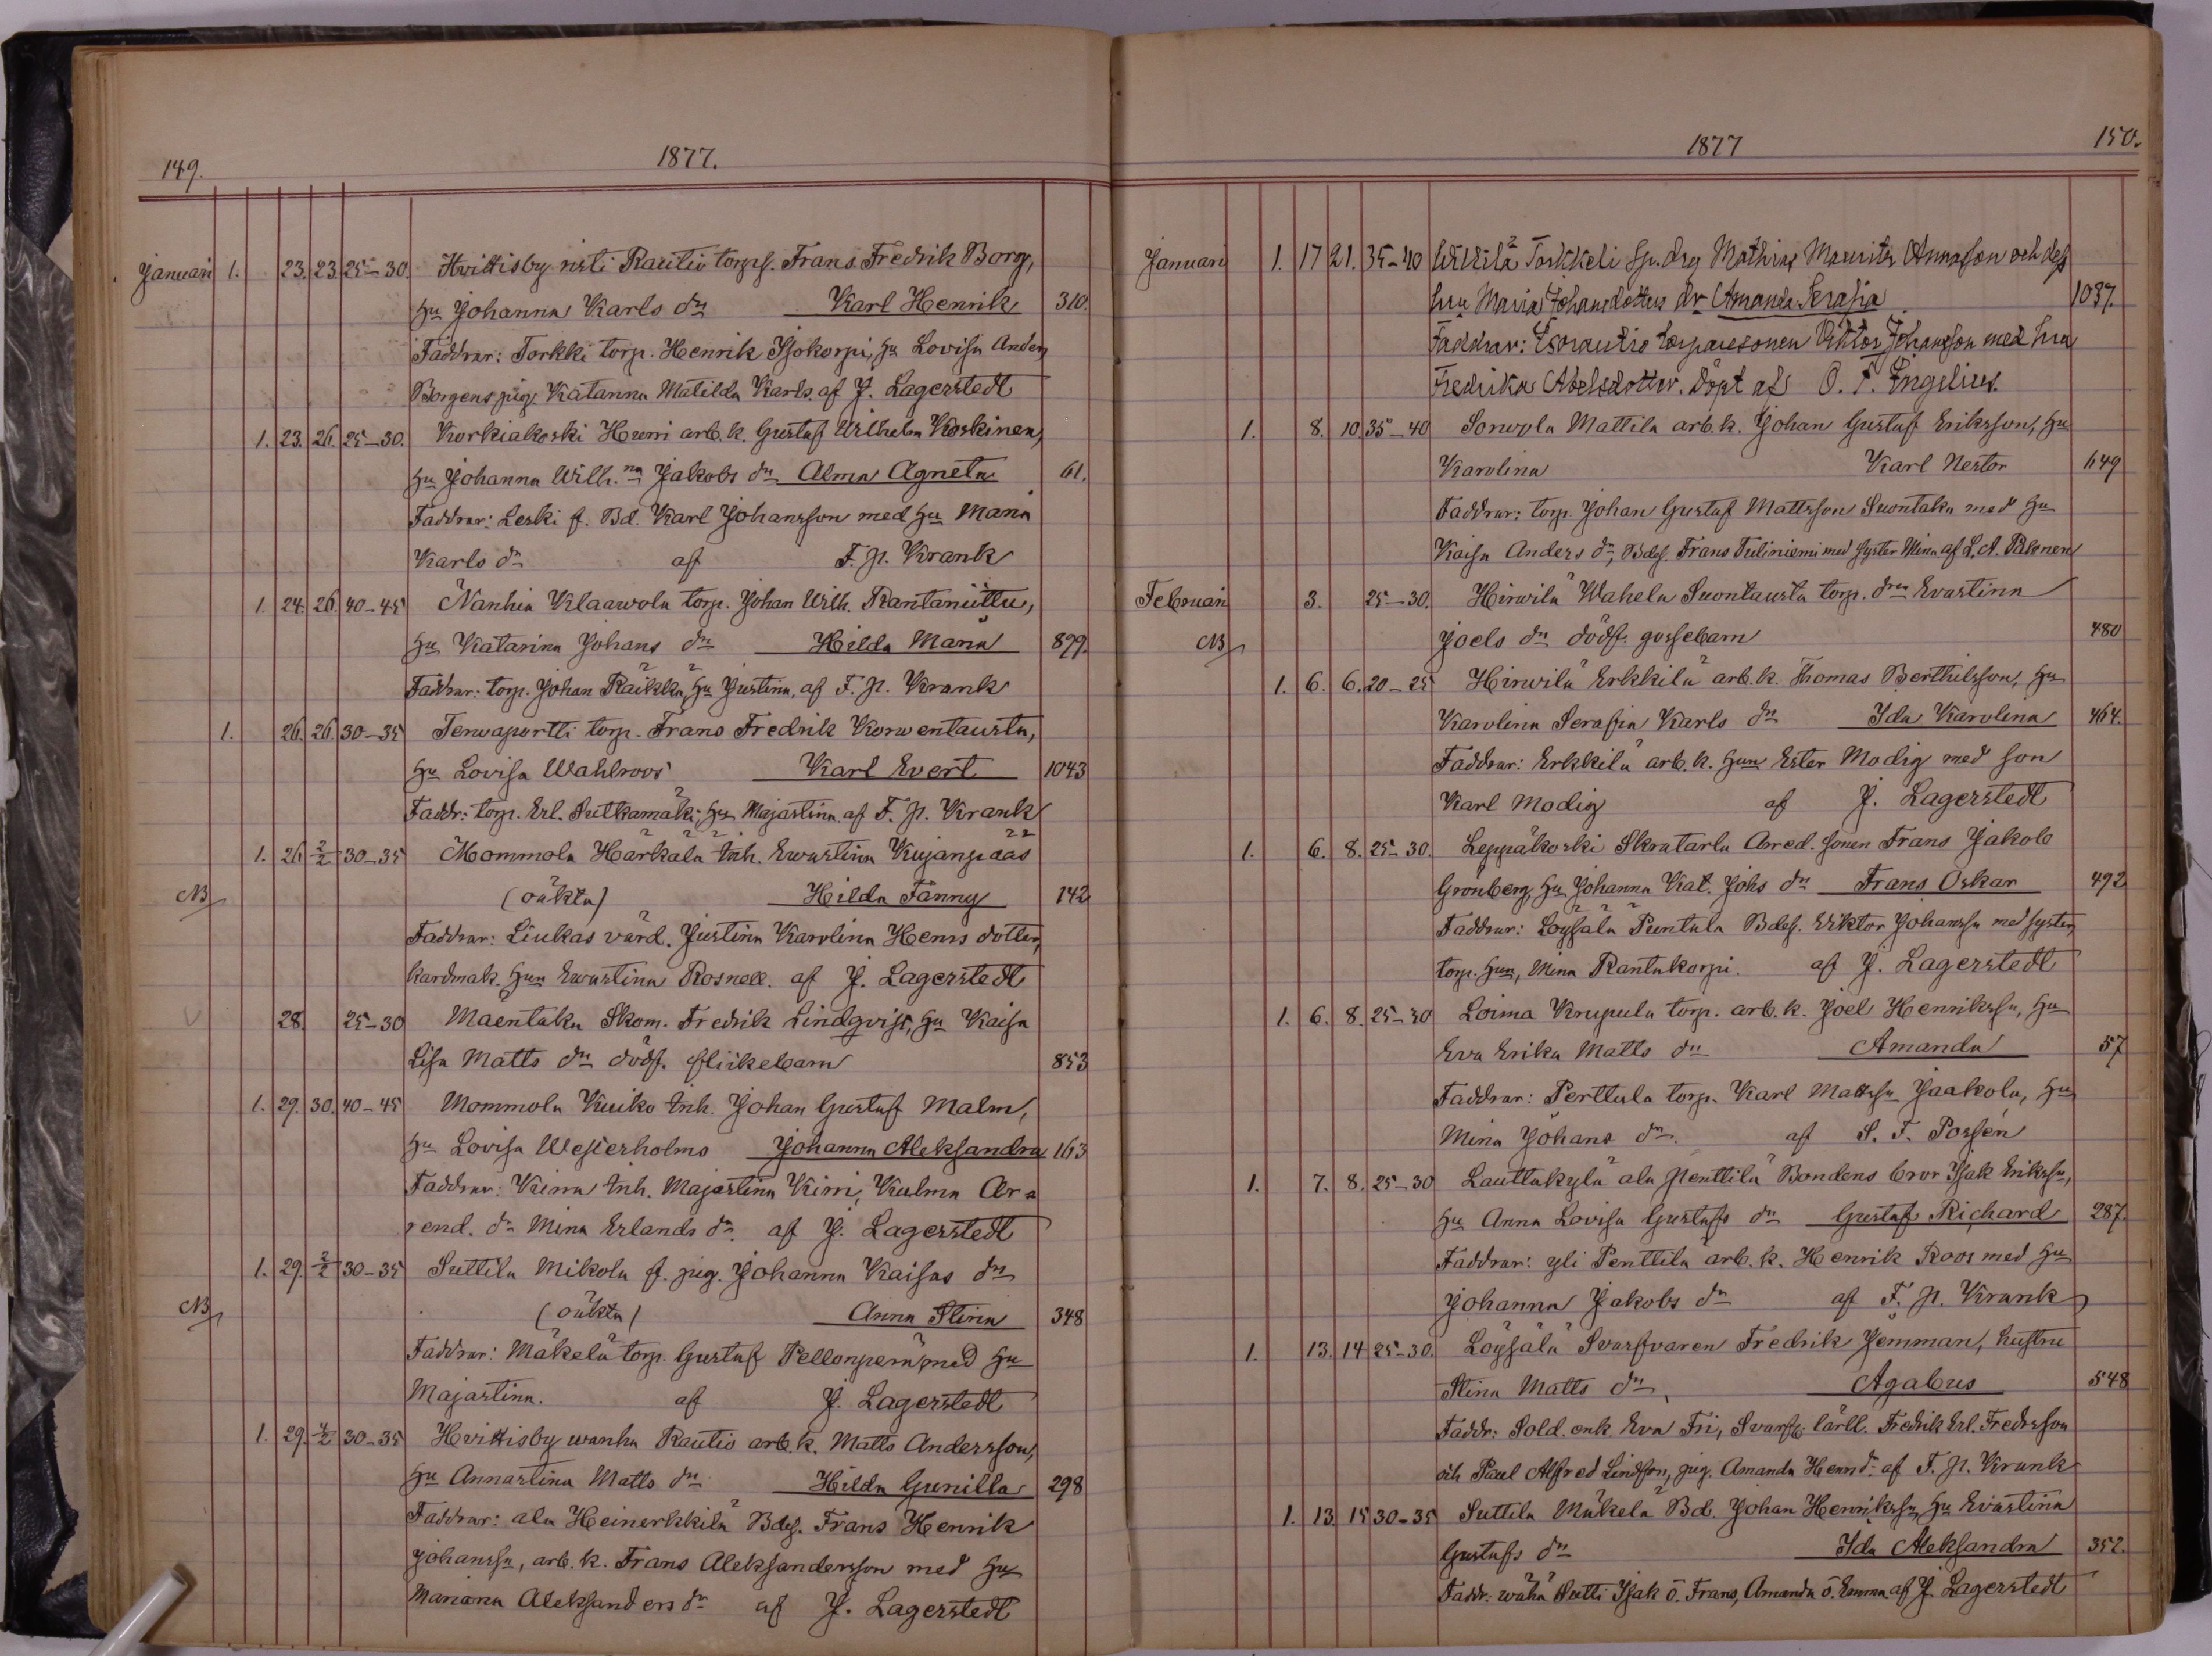 149. 1877.
Januari 1. 23. 23. 25-30. Hvittisby risti Rautio torps. Frans Fredrik Borg,
hu Johanna Karls dr Karl Henrik 310.
Faddrar: Torkki torp. Henrik Isokorpi, hu Lovisa Anders
Borgens pig. Katarina Matilda Karls. af J. Lagerstedt
1. 23. 26. 25-30. Korkiakoski Humi arb. k. Gustaf Wilhelm Koskinen,
hu Johanna Wilh.na Jakobs dr Alma Agneta 61.
Faddrar: Leski f. Bd. Karl Johansson med hu Maria
Karls dr af F. H. Krank
1. 24. 26. 40-45 Nanhia Klaawola torp. Johan Wilh. Rantaniittu,
hu Katarina Johans dr Hilda Maria 899.
Faddrar: torp. Johan Räikkä, hu Justina, af F. H. Krank
1. 26. 26. 30-35 Terwaportti torp. Frans Fredrik Korwentausta,
hu Lovisa Wahlroos Karl Evert 1043
Faddr: torp. Erl. Sutkamäki, hu Majastina af F. H. Krank
1. 26 2/2 30-35 Mommola Härkälä inh. Ewastina Kujanpää
NB (oäkta) Hilda Fanny 142
Faddrar: Liukas värd. Justina Karolina Henrs dotter,
kardmak. hun Ewastina Rosnell. af J. Lagerstedt
28. 25-30 Maentaka Skom. Fredrik Lindqvist, hu Kaisa
Lisa Matts dr dödf. flickebarn 853
1. 29. 30. 40-45 Mommola Kuiko inh. Johan Gustaf Malm,
hu Lovisa Westerholms Johanna Aleksandra 163
Faddrar: Kiima inh. Majastina Kiiri, Kulma Ar-
rend. dr Mina Erlands dr. af J. Lagerstedt
1. 29. 2/2 30-35 Suttila Mikola f. pig. Johanna Kaisas dr
NB (oäkta) Anna Stina 348
Faddrar: Mäkelä torp. Gustaf Pellonperä med hu
Majastina. af J. Lagerstedt
1. 29. 4/2 30-35 Hvittisby wanha Rautio arb. k. Matts Andersson,
hu Annastina Matts dr Hilda Gunilla 298
Faddrar: ala Heinerkkilä Bdes. Frans Henrik
Johanssn, arb. k. Frans Aleksandersson med hu
Mariana Aleksanders dr af J. Lagerstedt
1877 150.
Januari 1. 17 21. 35-40 Torkkeli Mathias Mauritz Annasson och dess
hu Maria Johansdotters dr Amanda Serafia 1037.
Faddrar: Isorautio torparesonen Viktor Johansson med hu
Fredrika Abelsdotter. Döpt af O. F. Ingelius.
1. 8. 10. 35-40 Sonvola Mattila arb. k. Johan Gustaf Eriksson, hu
Karolina Karl Nestor 649
Faddrar: torp. Johan Gustaf Mattsson Suontaka med hu
Kaisa Anders dr, Bdes. Frans Tuliniemi med syster Mina af L. A. Palonen
Februari 3. 25-30. Hirwilä Wahela Suontausta torp. drn Evastina
NB Joels dr dödf. gossebarn 480
1. 6. 6. 20-25 Hirwilä Erkkilä arb. k. Thomas Berthilsson, hu
Karolina Serafia Karls dr Ida Karolina 464.
Faddrar: Erkkilä arb. k. hun Ester Modig med son
Karl Modig af J. Lagerstedt
1. 6. 8. 25-30. Leppäkoski Skratarla Arred. sonen Frans Jakob
Grönberg, hu Johanna Kat. Johs dr Frans Oskar 492
Faddrar: Löysälä Puntula Bdes. Viktor Johanssn med syster,
torp. hun, Mina Rantakorpi. af J. Lagerstedt
1. 6. 8. 25-30 Loima Krupula torp. arb. k. Joel Henrikssn, hu
Eva Erika Matts dr Amanda 57
Faddrar: Perttula torp. Karl Mattssn Jaakola, hu
Mina Johans dr. af S. F. Possén
1. 7. 8. 25-30 Lauttakylä ala Penttilä Bondens bror Isak Erikssn,
hu Anna Lovisa Gustafs dr Gustaf Richard 287.
Faddrar: yli Penttila arb. k. Henrik Roos med hu
Johanna Jakobs dr af F. H. Krank
1. 13. 14 25-30. Löysälä Svarfvaren Fredrik Jemman, hustru
Stina Matts dr Agabus 548
Faddr: Sold. enk. Eva Fri, Svarfv. lärl. Fredrik Erl. Fredrsson
och Paul Alfred Lindson, pig. Amanda Henrd. af F. H. Krank
1. 13. 15 30-35 Suttila Mäkelä Bd. Johan Henrikssn, hu Evastina
Gustafs dr Ida Aleksandra 352.
Faddr: wähä Isak o. Frans, Amanda o. Emma af J. Lagerstedt